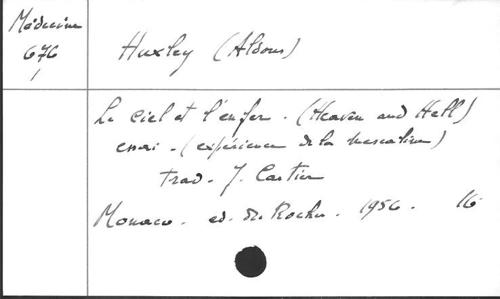 Médecine
676
/
Huxley (Aldous)
Le Ciel et l'enfer. (Heaven and Hell)
essai. (expérience de la mescaline)
trad. J. Castier
Monaco. ed. du Rocher. 1956. 16